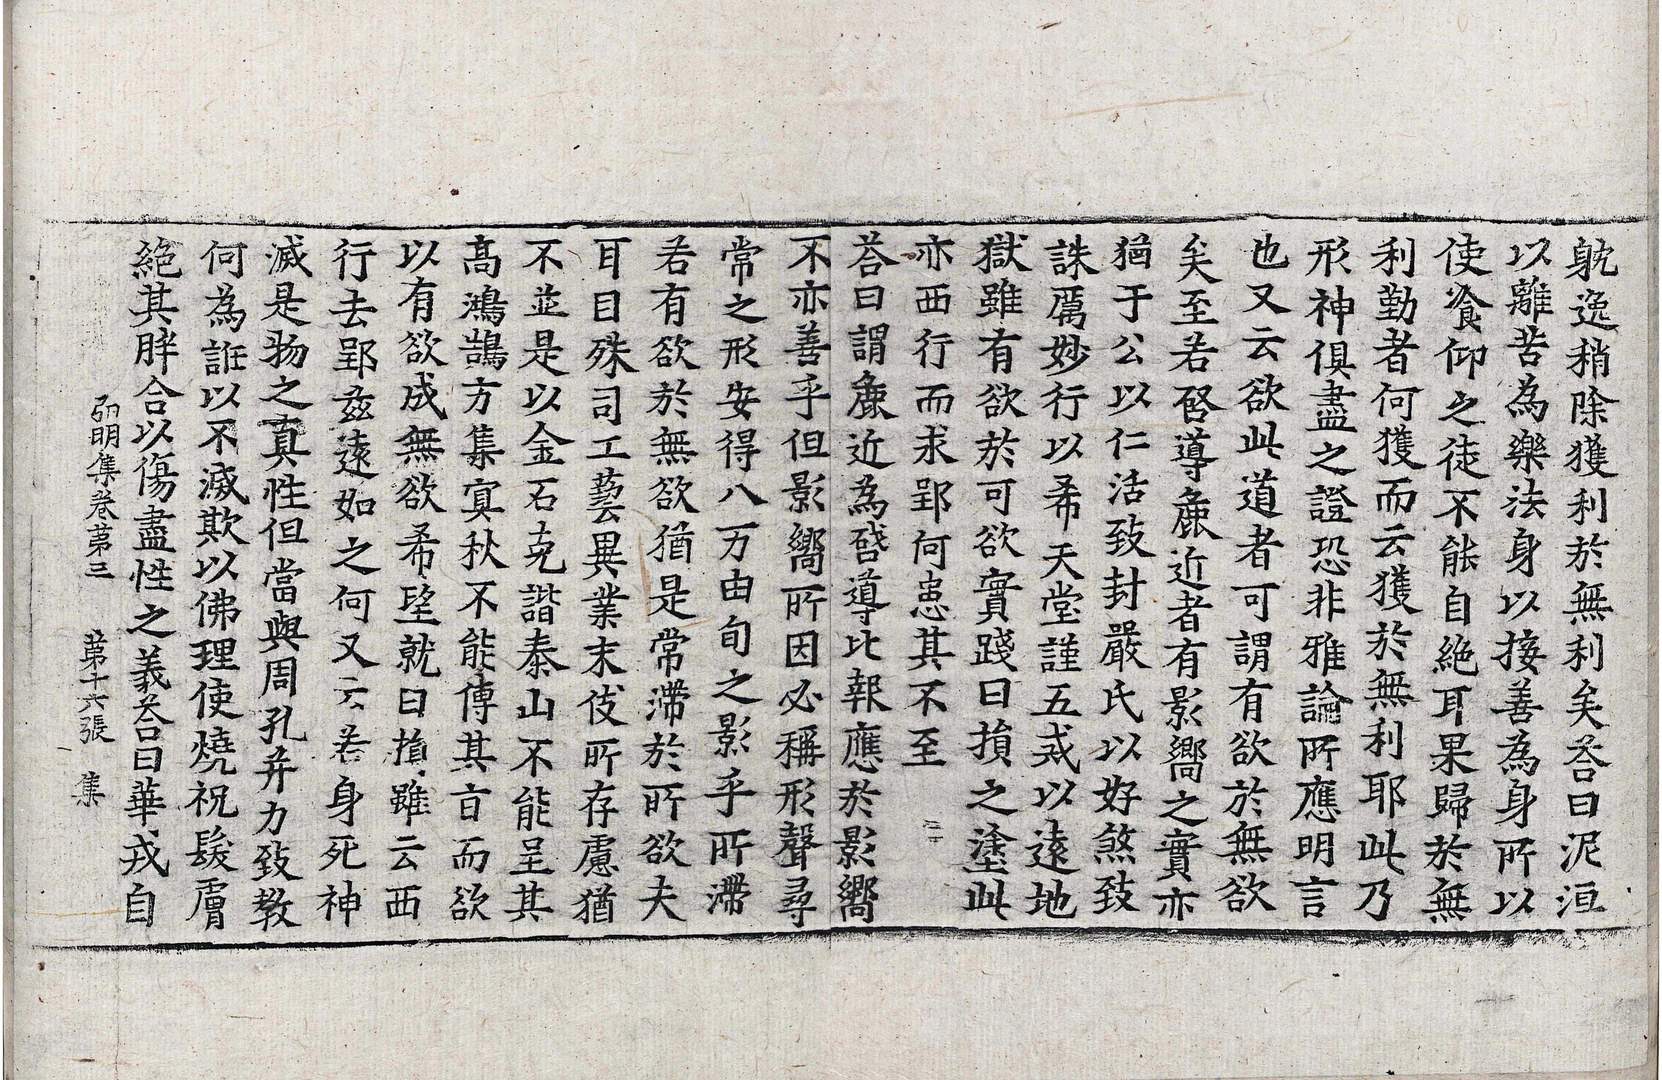 躭逸稍除獲利於無利矣荅曰泥洹
以離苦為樂法身以接善為身所以
使飡仰之徒不能自絕耳果歸於無
利勤者何獲而云獲於無利耶此乃
形神俱盡之證恐非雅論所應明言
也又云欲此道者可謂有欲於無欲
矣至若啓導麁近者有影嚮之實亦
猶于公以仁活致封嚴氏以好煞致
誅厲妙行以希天堂謹五戒以遠地
獄雖有欲於可欲實踐日損之塗此
亦西行而求郢何患其不至
荅曰謂麁近為啓導比報應於影嚮
不亦善乎但影嚮所因必稱形聲尋
常之形安得八万由旬之影乎所滯
若有欲於無欲猶是常滯於所欲夫
耳目殊司工藝異業末伎所存慮猶
不並是以金石克諧泰山不能呈其
髙鴻鵠方集冥秋不能傳其旨而欲
以有欲成無欲希望就日損雖云西
行去郢茲遠如之何又云若身死神
滅是物之真性但當與周孔并力致教
何為誑以不滅欺以佛理使燒祝髮膚
絕其胖合以傷盡性之義荅曰華戎自
弘明集卷苐三 苐十六張 集